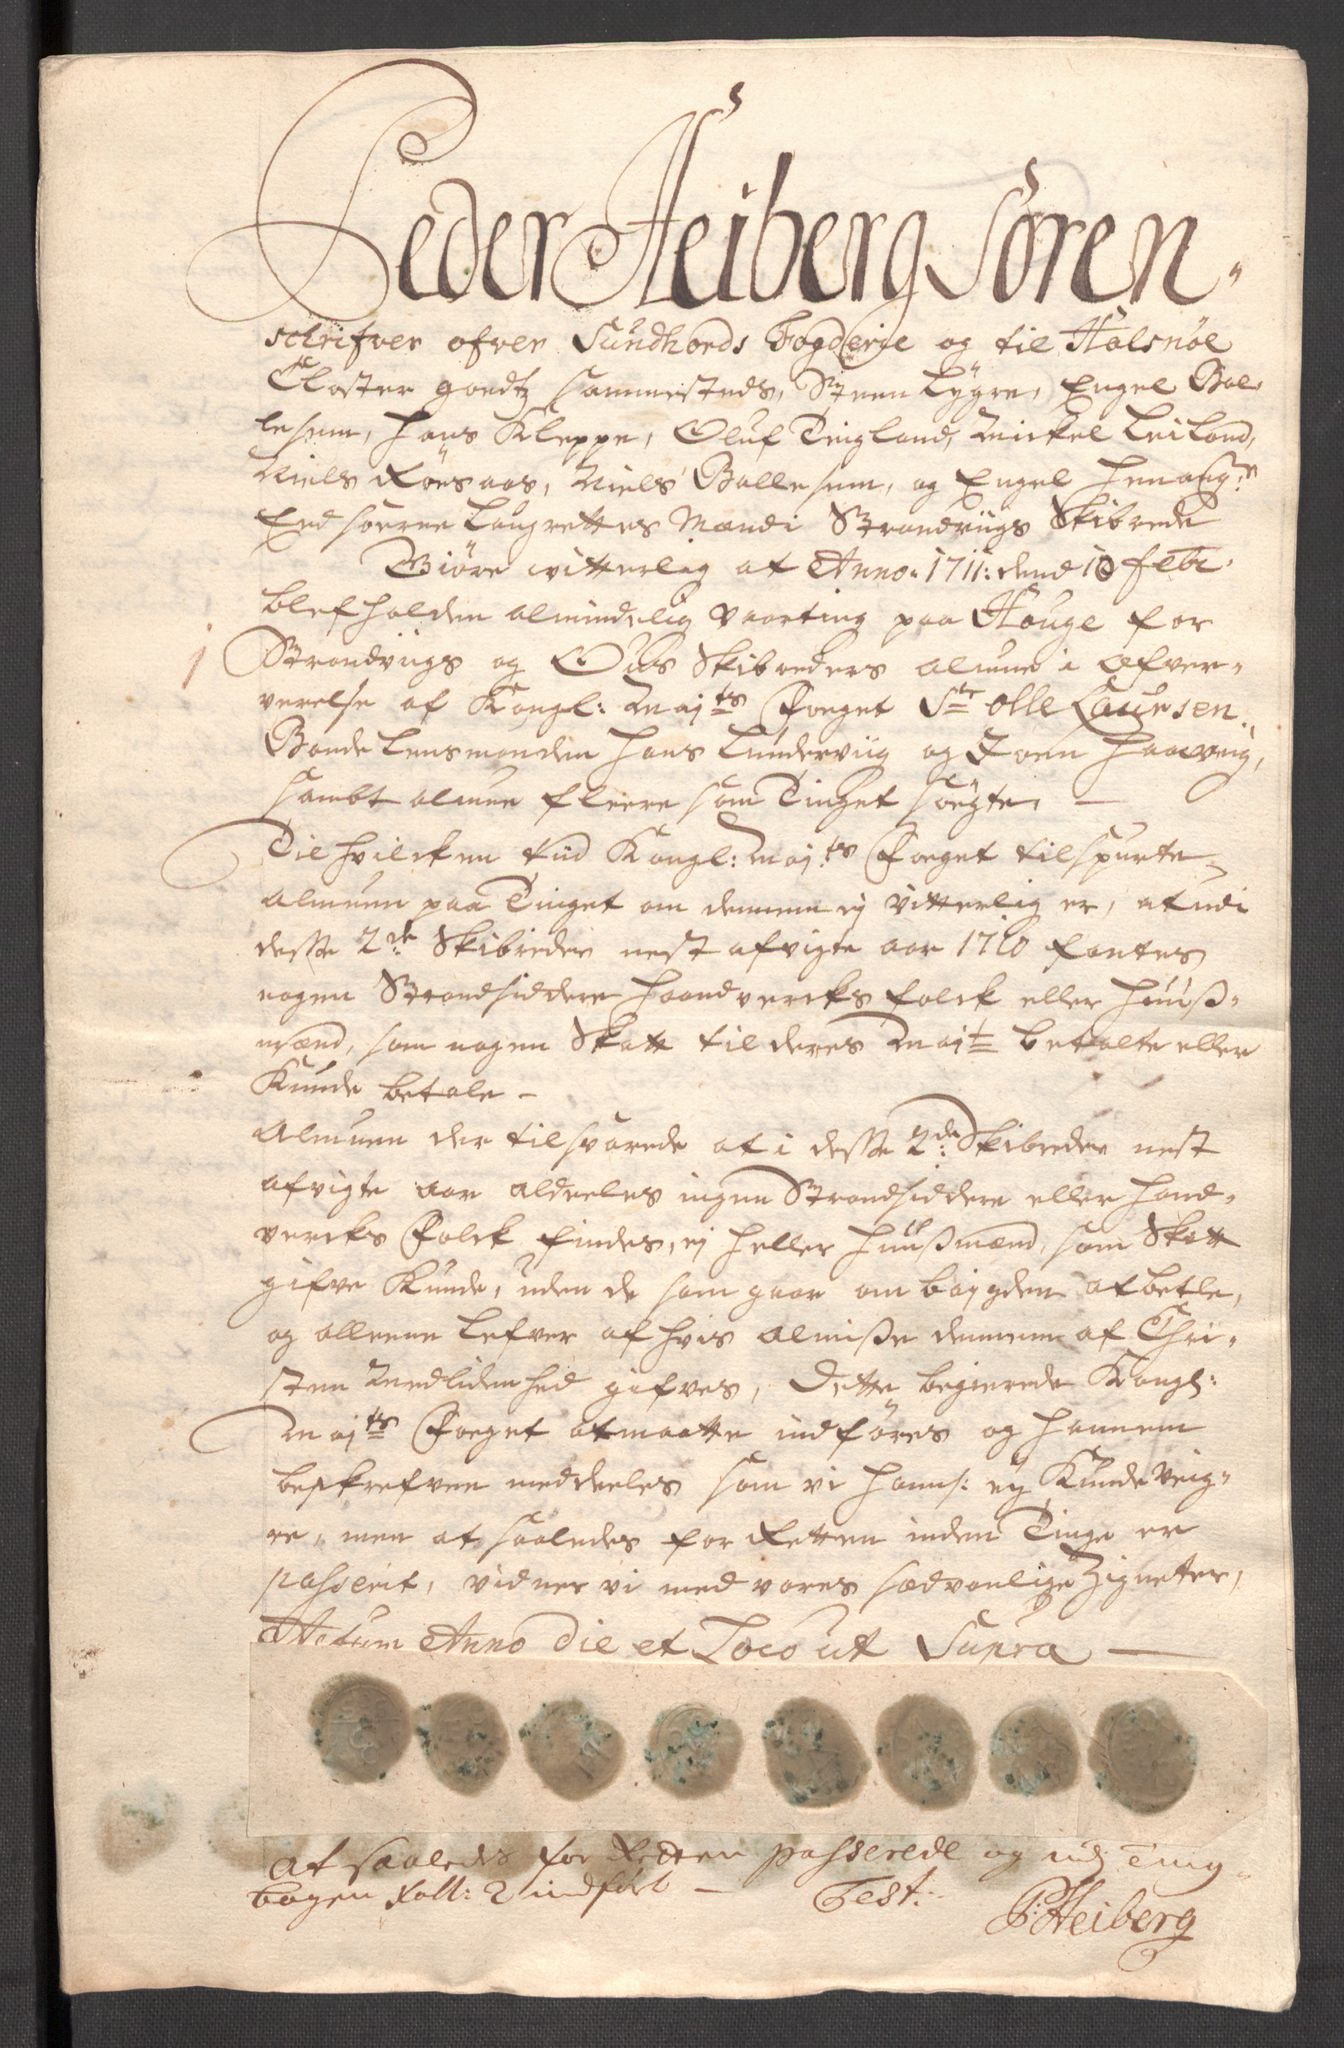 Peder Heiberg Soren-
schrifver ofver Sundhords Fogderie og til Halsnöe
Closter goedtz sammesteds, Steen Lygre, Engel Bal-
lesem, Hans Kleppe, Oluf Tingland, Mickel Leiland,
Niels Røesaas, Niels Ballesem, og Engel
Eedsoerne Laugrettes Mænd i Strandviigs Skibrede
Giöre witterlig at Anno 1711: dend 10 Febr:
blef holden almindelig Vaarting paa Houge for
Strandviigs og Ous Skibreders almue i Ofver-
verelse af Kongl: Mayts Foeget Sr Olle Laursen
Bonde Lensmanden Hans Lunderviig og Joen Haaveig,
sambt almue fleere som Tinget søgte, —
Til hvilcken tiid Kongl: Mayts Foeget tilspurte
Almuen paa Tinget om dennem ej vitterlig er, at udi
desse 2de Skibreder nest afvigte aar 1710 fantes
nogen Strandsiddere Haandvercks folck eller Huuß-
mænd, som nogen Skatt til deres Mayt betalte eller
Kunde betale -
Almuen der til svarede at i desse 2de Skibreder nest
afvigte aar aldeeles ingen Strandsiddere eller Hand-
vercks Folck findes, ej heller Huußmænd, som Skatt
gifve Kunde, uden de som gaar om bøygden at betle,
og alleene Lefver af hvis almiße dennem af Chri-
sten Medlidenhed gifves, Dette begierede Kongl:
Mayts Foeget at maatte indføres og hannem
beskrefven meddeeles som vi hannem ej Kunde Veig-
re, men at saaledes for Retten inden Tinge er
passerit, vidner vi med vores sædvanlige Zigneter,
Actum Anno Die et Loco ut Supra —
At saaledes for Retten passerede og udj Ting-
bogen Foll: 2 indfört — Test:
P: Heiberg